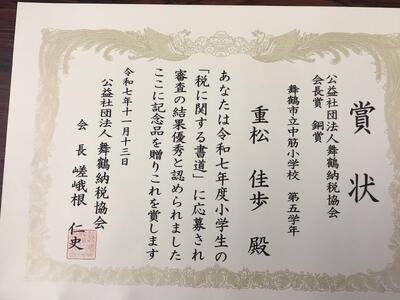 賞状
公益社団法人舞鶴納税協会
会長賞 銅賞
舞鶴市立中筋小学校 第五学年
重松 佳歩 殿
あなたは令和七年度小学生の
「税に関する書道」に応募され
審査の結果優秀と認められました
ここに記念品を贈りこれを賞します
令和七年十一月十三日
公益社団法人 舞鶴納税協会
会長 嵯峨根 仁史